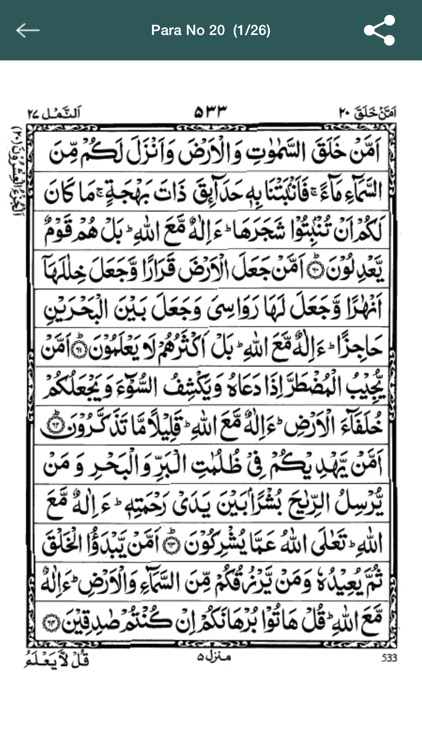 Para No 20 (1/26)
اَمَّنْ خَلَقَ ٢٠
٥٣٣
اَلنَّمْل ٢٧
اَمَّنْ خَلَقَ السَّمٰوٰتِ وَالْاَرْضَ وَاَنْزَلَ لَكُمْ مِّنَ
السَّمَآءِ مَآءً ۚ فَاَنْۢبَتْنَا بِهٖ حَدَآىِٕقَ ذَاتَ بَهْجَةٍ ۚ مَا كَانَ
لَكُمْ اَنْ تُنْۢبِتُوْا شَجَرَهَا ؕ ءَاِلٰهٌ مَّعَ اللّٰهِ ؕ بَلْ هُمْ قَوْمٌ
يَّعْدِلُوْنَ ۝٦٠ اَمَّنْ جَعَلَ الْاَرْضَ قَرَارًا وَّجَعَلَ خِلٰلَهَاۤ
اَنْهٰرًا وَّجَعَلَ لَهَا رَوَاسِيَ وَجَعَلَ بَيْنَ الْبَحْرَيْنِ
حَاجِزًا ؕ ءَاِلٰهٌ مَّعَ اللّٰهِ ؕ بَلْ اَكْثَرُهُمْ لَا يَعْلَمُوْنَ ۝٦١ اَمَّنْ
يُّجِيْبُ الْمُضْطَرَّ اِذَا دَعَاهُ وَيَكْشِفُ السُّوْٓءَ وَيَجْعَلُكُمْ
خُلَفَآءَ الْاَرْضِ ؕ ءَاِلٰهٌ مَّعَ اللّٰهِ ؕ قَلِيْلًا مَّا تَذَكَّرُوْنَ ۝٦٢
اَمَّنْ يَّهْدِيْكُمْ فِيْ ظُلُمٰتِ الْبَرِّ وَالْبَحْرِ وَمَنْ
يُّرْسِلُ الرِّيٰحَ بُشْرًۢا بَيْنَ يَدَيْ رَحْمَتِهٖ ؕ ءَاِلٰهٌ مَّعَ
اللّٰهِ ؕ تَعٰلَى اللّٰهُ عَمَّا يُشْرِكُوْنَ ۝٦٣ اَمَّنْ يَّبْدَؤُا الْخَلْقَ
ثُمَّ يُعِيْدُهٗ وَمَنْ يَّرْزُقُكُمْ مِّنَ السَّمَآءِ وَالْاَرْضِ ؕ ءَاِلٰهٌ
مَّعَ اللّٰهِ ؕ قُلْ هَاتُوْا بُرْهَانَكُمْ اِنْ كُنْتُمْ صٰدِقِيْنَ ۝٦٤
533
منزل ۵
قُلْ لَّا يَعْلَمُ